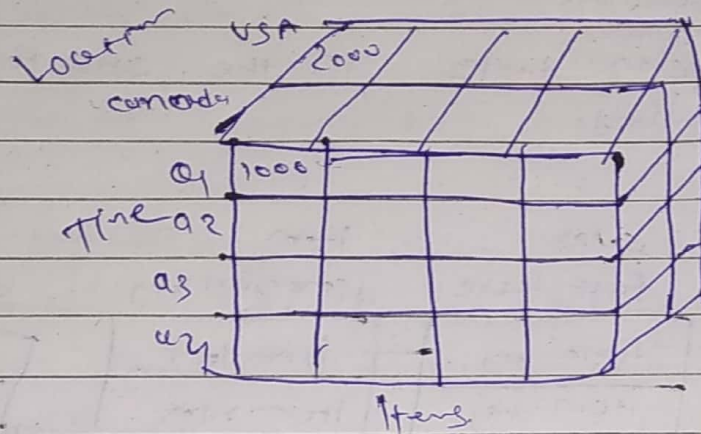 Location
USA
2000
canada
Q1 1000
Time Q2
Q3
Q4
Items